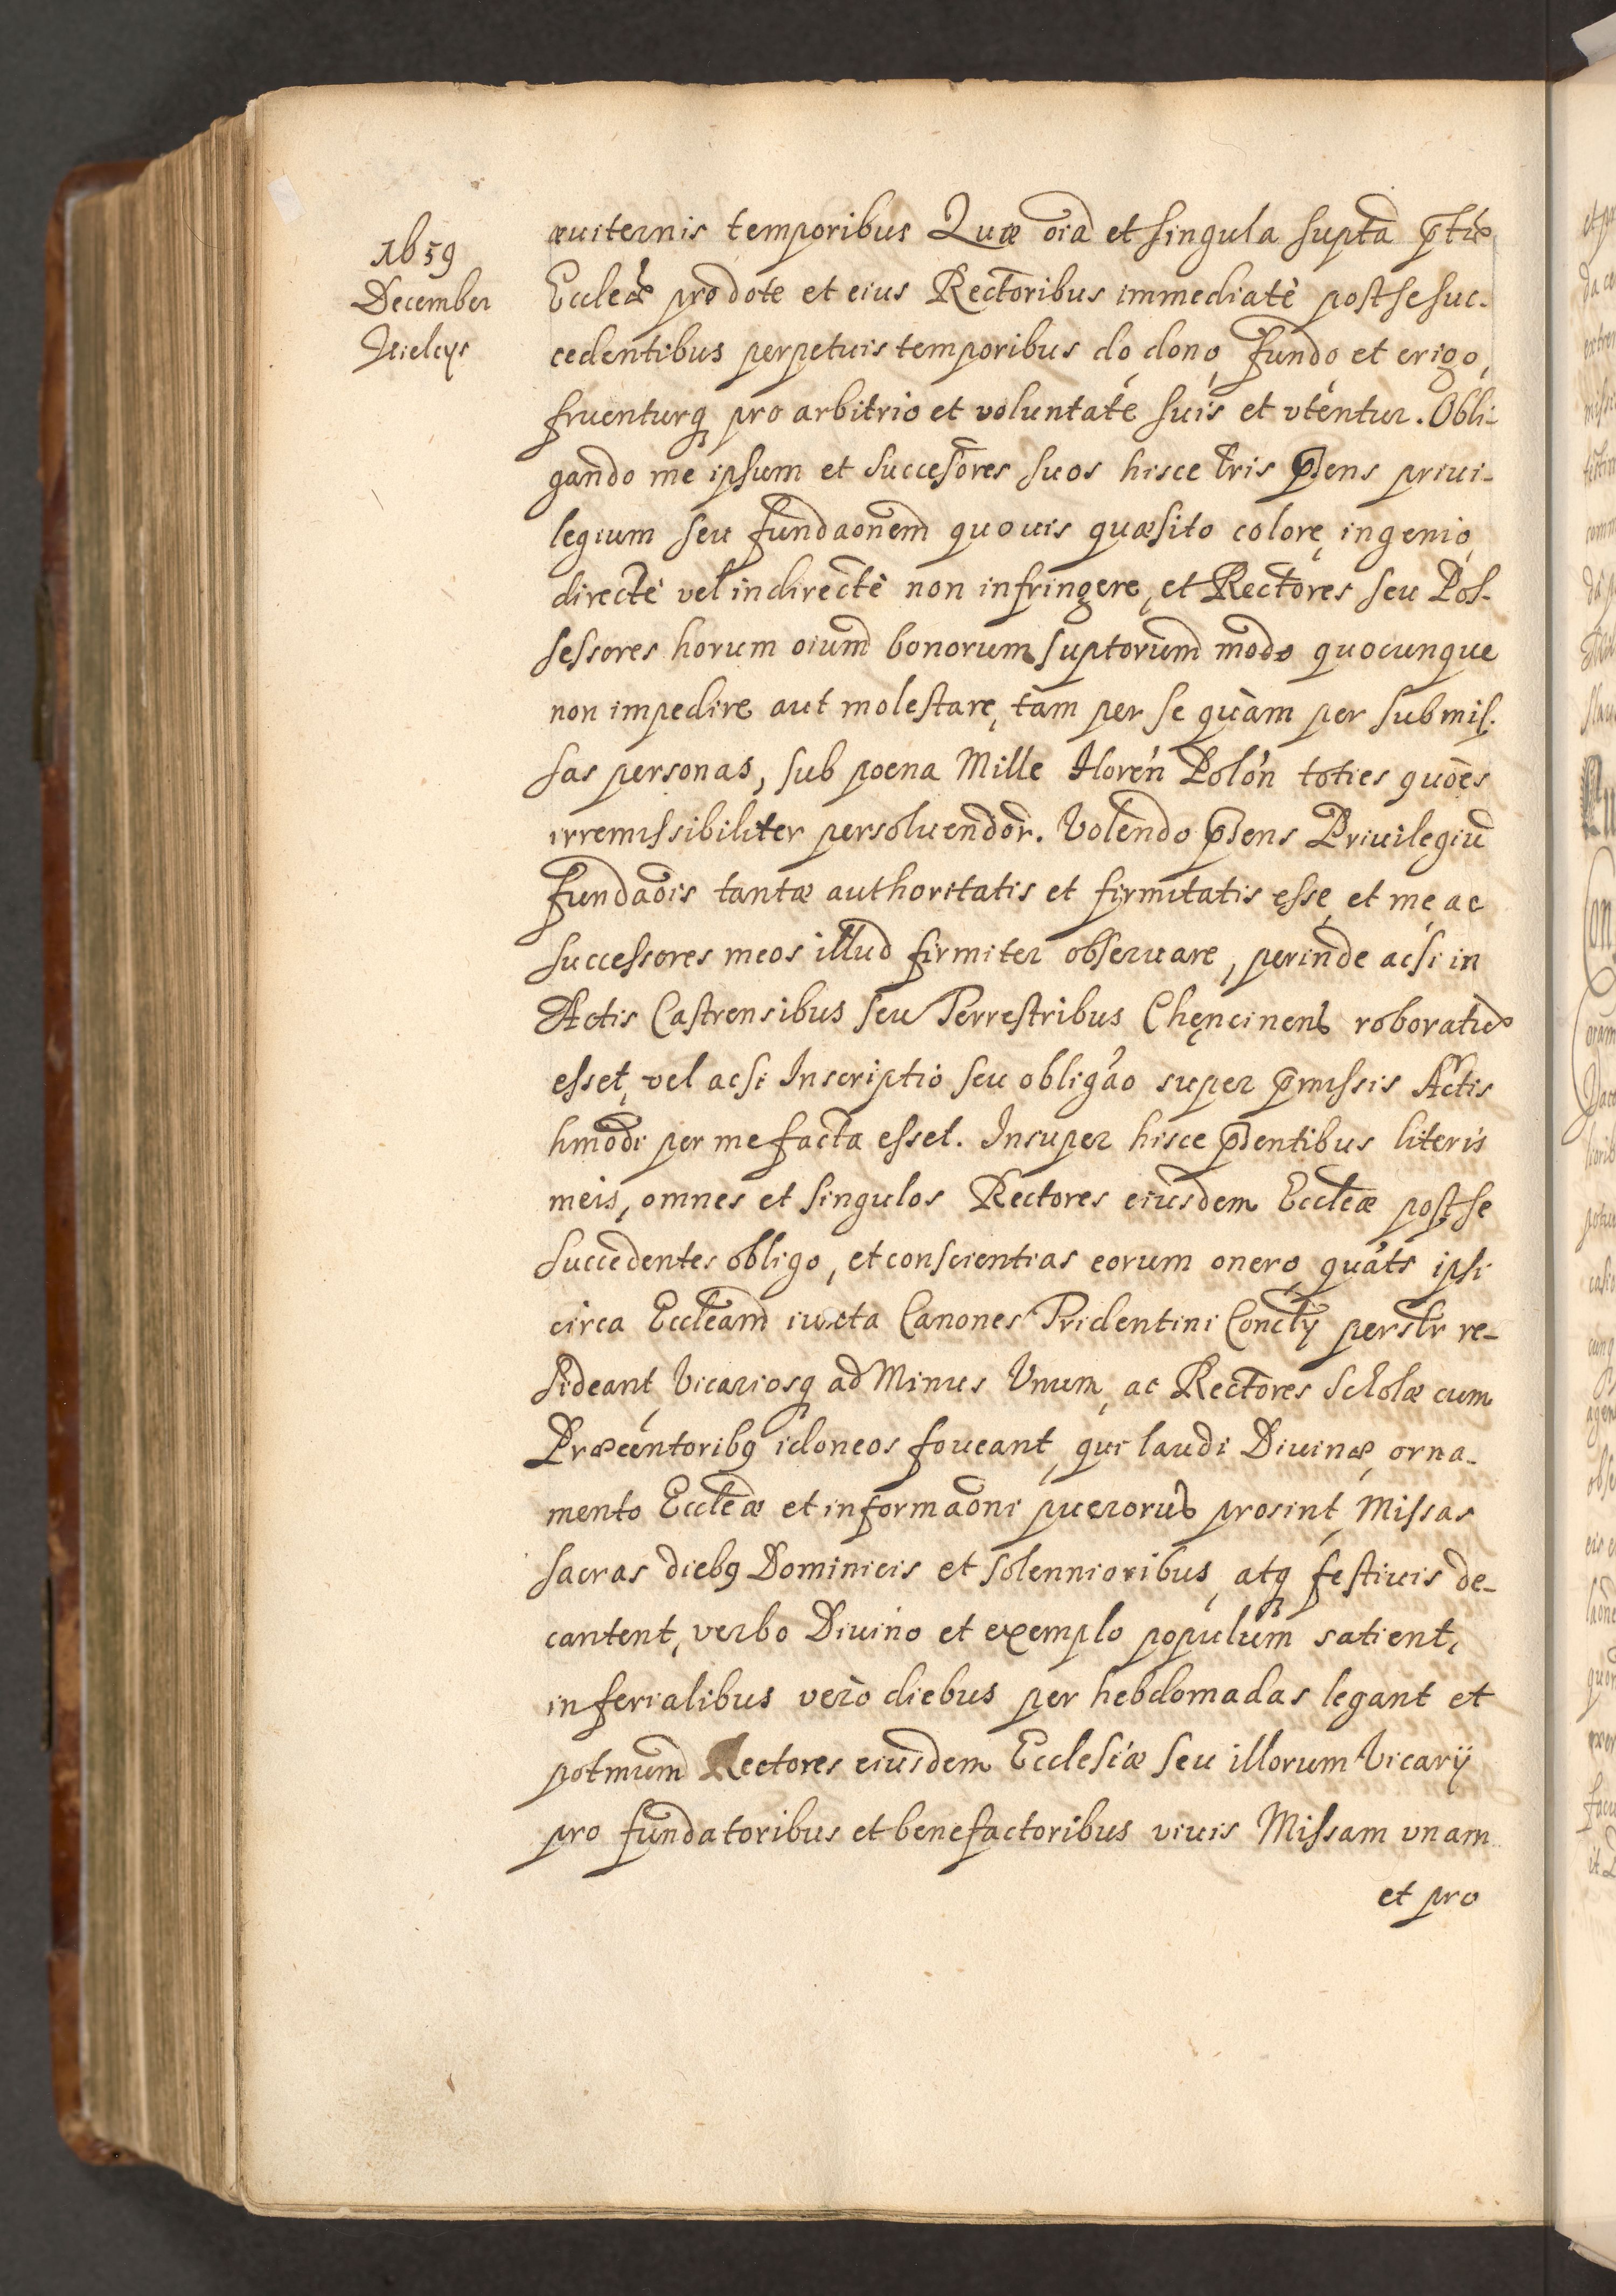 1659
December
Kielcys
æuiternis temporibus Quæ oia et singula supta ptæ
Eccleæ pro dote et eius Rectoribus immediatè post se suc-
cedentibus perpetuis temporibus do, dono, fundo et erigo,
fruenturq pro arbitrio et voluntate suis et vtentur. Obli-
gando me ipsum et successores suos hisce lris pnsens priui-
legium seu fundaonem quouis quæsito colore, ingenio,
directè vel indirectè non infringere, et Rectores seu Pos-
sessores horum oium bonorum suptorum modo quocunque
non impedire aut molestare, tàm per se quàm per submis-
sas personas, sub poena Mille Floren Polon toties quoes
irremissibiliter persoluendor. Volendo pnsens Priuilegiu
fundaois tantæ authoritatis et firmitatis esse, et me, ac
successores meos illud firmiter obseruare, perinde acsi in
Actis Castrensibus seu Terrestribus Chęncinens roboratu
esset, vel acsi Inscriptio seu obligao super pmissis Actis
hmodi per me facta esset. Insuper hisce pntibus literis
meis, omnes et singulos Rectores eiusdem Eccleæ post se
succedentes obligo, et conscientias eorum onero, quats ipsi
circa Eccleam iuxta Canones Tridentini Conclij perslr re-
sideant, Vicariosq ad Minus Vnum, ac Rectores Scholæ cum
Præcentoribq idoneos foueant, qui laudi Diuinæ, orna-
mento Eccleæ et informaoni pueroru prosint, Missas
sacras diebq Dominicis et solennioribus, atq festiuis de-
cantent, verbo Diuino et exemplo populum satient,
in ferialibus verò diebus per hebdomadas legant et
potmum Rectores eiusdem Ecclesiæ seu illorum Vicarij
pro fundatoribus et benefactoribus viuis Missam vnam
et pro